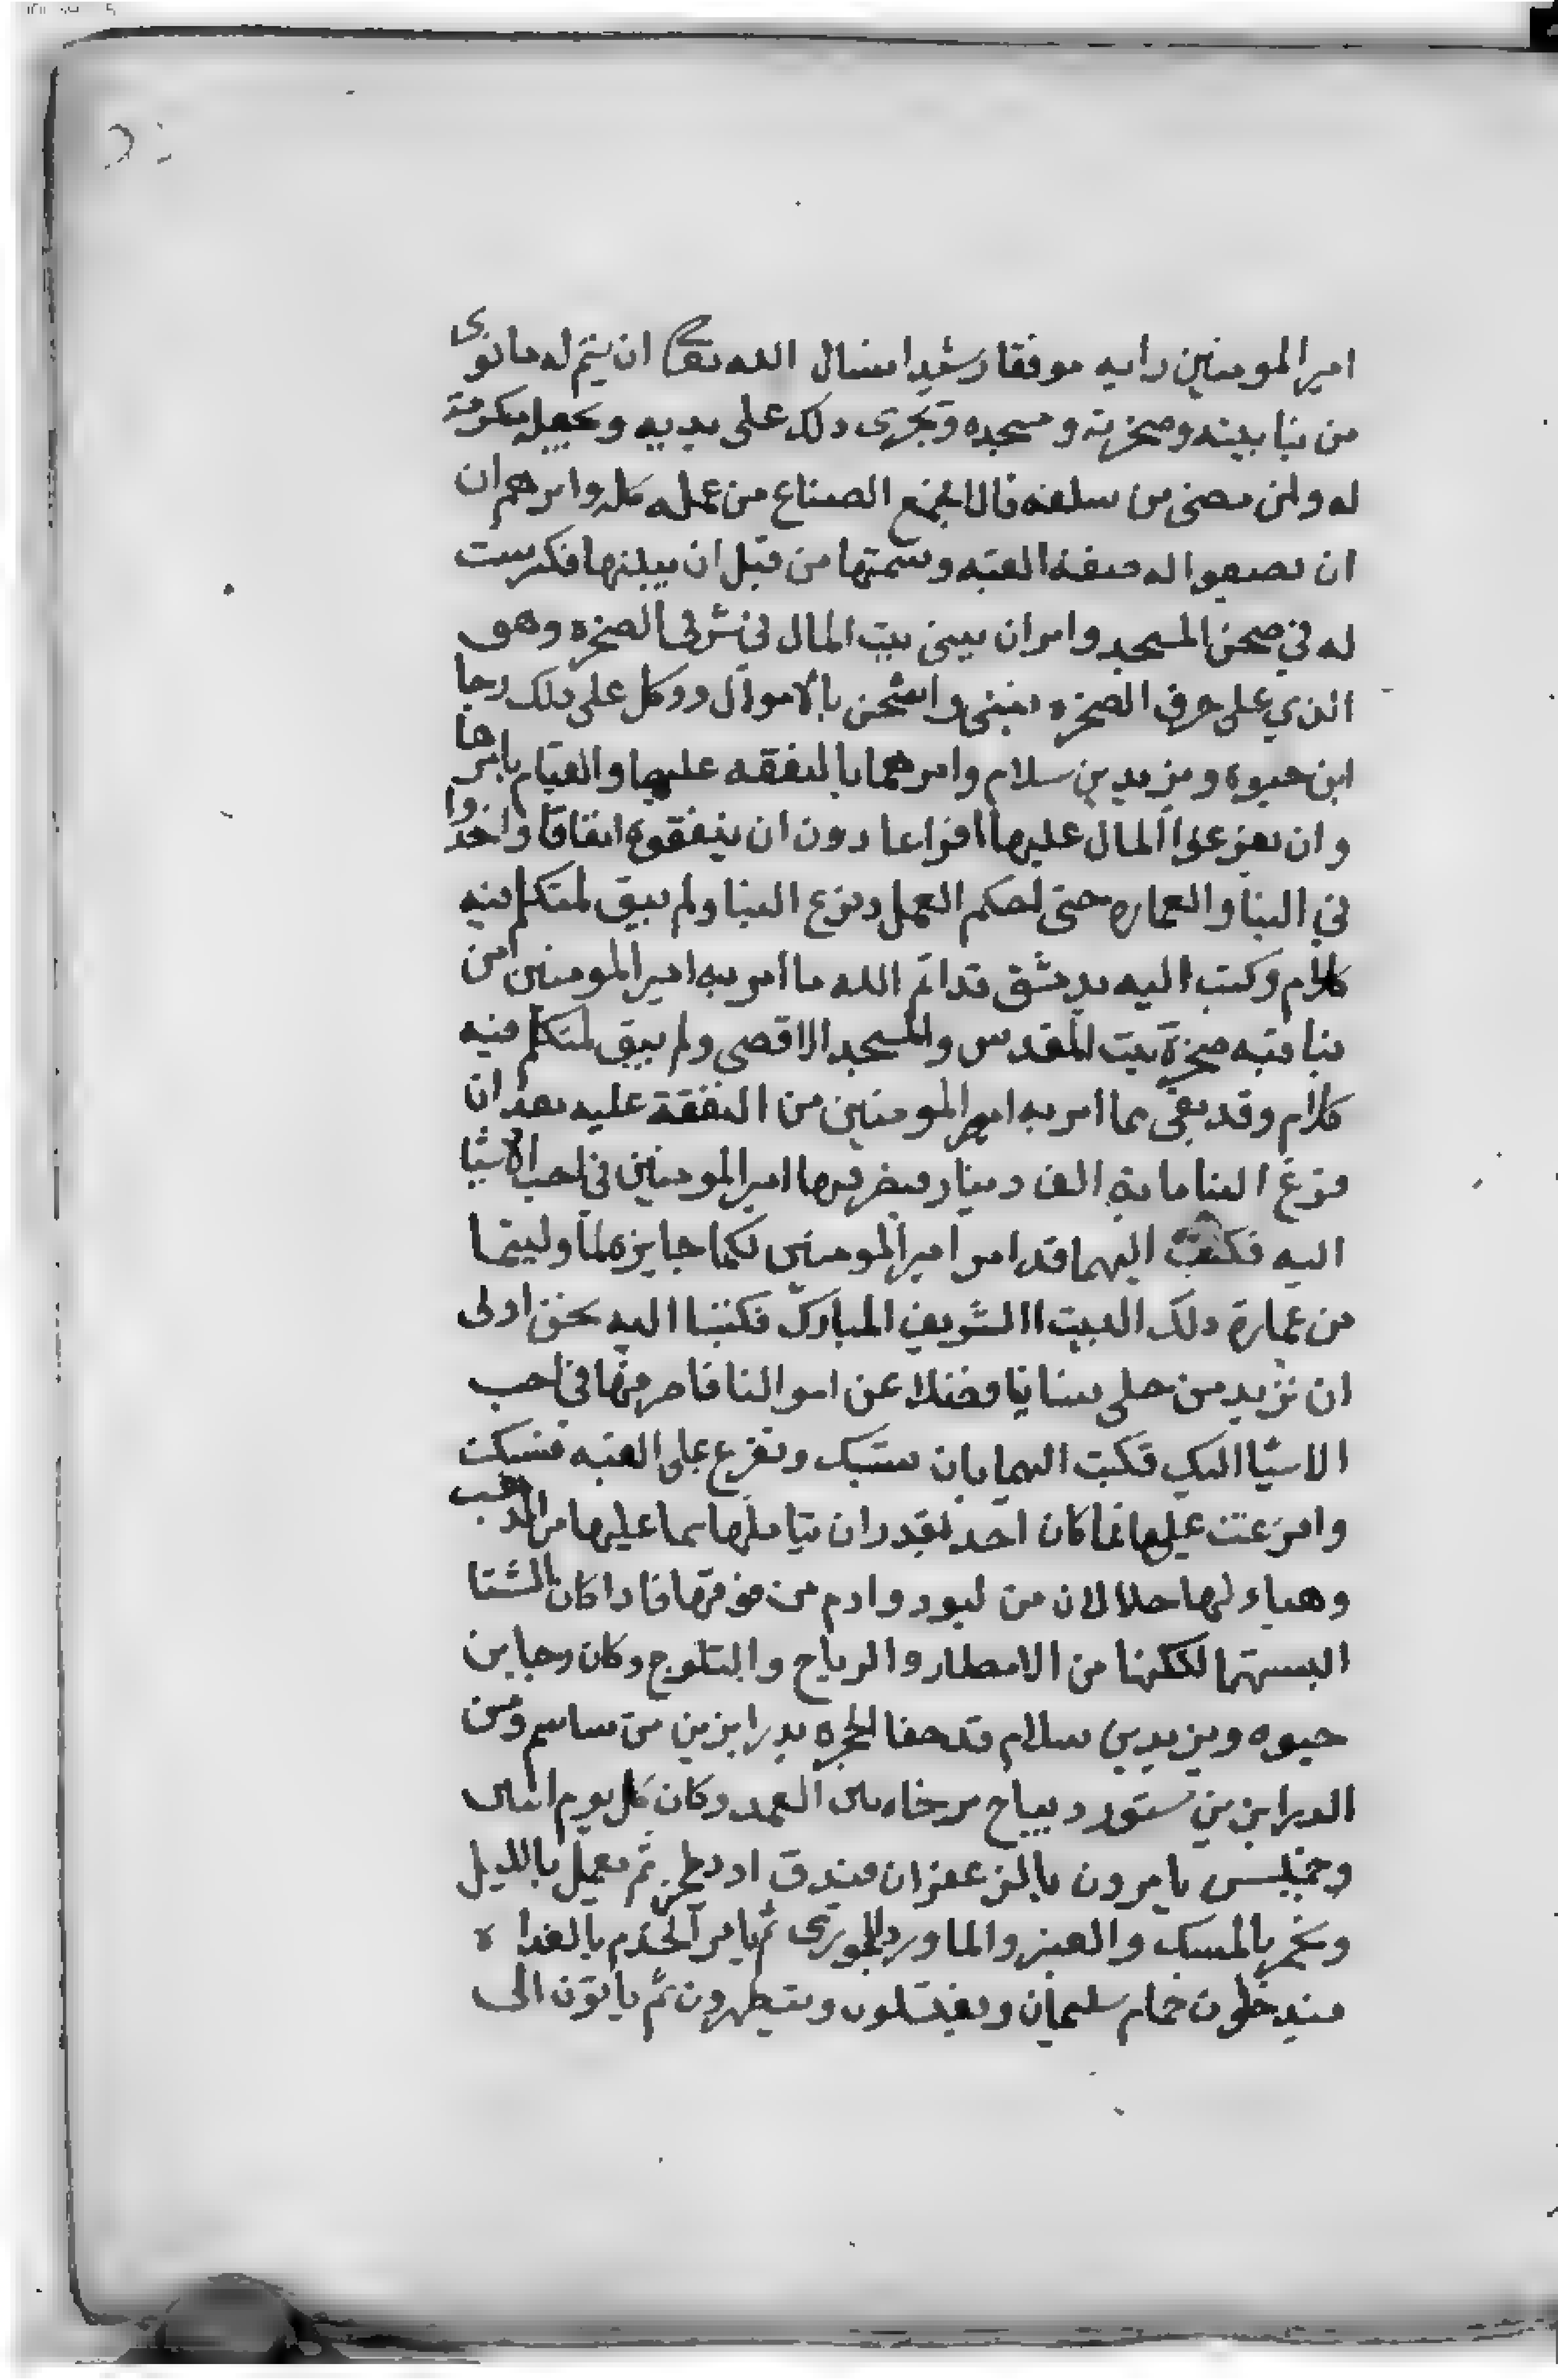 امير المومنين رايه موفقا رشيدا سال الله تعالى ان يتم له ما نوى
من بنا بيته وصخرته ومسجده ويجرى دلك على يديه ويجعله مكرمة
له ولمن مضى من سلفه قال فجمع الصناع من عمله كله وامرهم ان
ان يصيغوا له صفة القبه وسمتها من قبل ان يبنيها فكرست
له في صحن المسجد وامر ان يبنى بيت المال في شرقي الصخره وهو
الذي على حرف الصخره فبنى واشحن بالاموال ووكل على دلك رجا
ابن حيوه ويزيد بن سلام وامرهما بالنفقه عليها والقيام بامرها
وان يفرغوا المال عليها افراغا دون ان ينفقوه انفاقا واخذوا
في البنا والعماره حتى احكم العمل وفرغ البنا ولم يبق لمتكلم فيه
كلام وكتب اليه بدمشق قد اتم الله ما امر به امير المومنين من
بنا قبه صخرة بيت المقدس والمسجد الاقصى ولم يبق لمتكلم فيه
كلام وقد بقى مما امر به امير المومنين من النفقة عليه بعد ان
فرغ البنا ماية الف دينار فيصرفها امير المومنين في احب الاشيا
اليه فكتب اليهما قد امر امير المومنين لكما جايزه لما وليتما
من عمارة دلك البيت الشريف المبارك فكتبا اليه نحن اولى
ان نزيد من حلى نساينا فضلا عن اموالنا فاصرفها في احب
الاشيا اليك فكتب اليهما بان تسبك وتفرغ على القبه فسبكت
وافرغت عليها فما كان احد يقدر ان يتاملها مما عليها من الدهب
وهياء لها جلالان من لبود وادم من فوقها فادا كان الشتا
البستهما لتكنها من الامطار والرياح والثلوج وكان رجا بن
حيوه ويزيد بن سلام قد حفا الحجره بدرابزين من ساسم ومن
الدرابزين ستور ديباج مرخاه بين العمد وكان كل يوم اثنين
وخميس يامرون بالزعفران فيدق او يطحن ثم يعمل بالليل
ويخمر بالمسك والعنبر والماورد الجورى ثم يامر الخدم بالغداه
فيدخلون حمام سليمان ويغتسلون ويتطهرون ثم ياتون الى